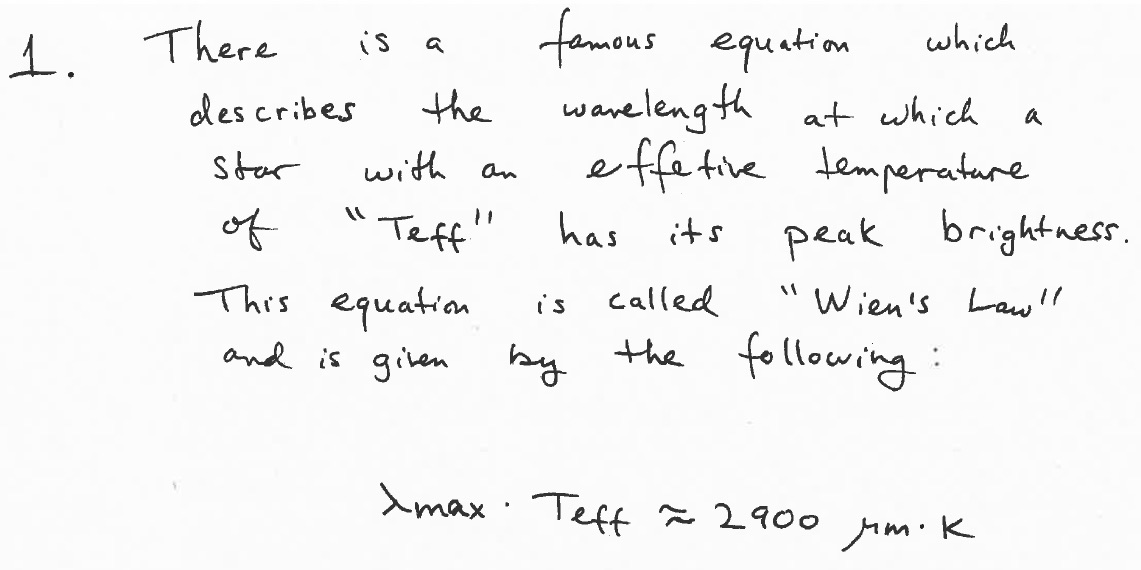 1. There is a famous equation which
describes the wavelength at which a
star with an effetive temperature
of "Teff" has its peak brightness.
This equation is called "Wien's Law"
and is given by the following:
λmax · Teff ≈ 2900 μm·K